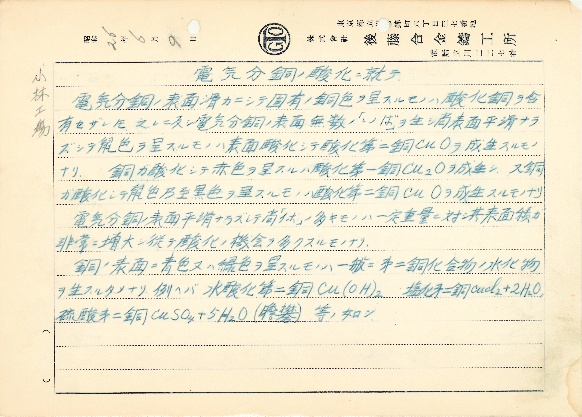 昭和 26 年 6 月 9 日
株式会社 後藤合金鋳工所
小林工場
電気分銅ノ酸化ニ就テ
電気分銅ノ表面滑カニシテ固有ノ銅色ヲ呈スルモノハ酸化銅ヲ含
有セザレ𪜈 之レニ反シ電気分銅ノ表面無数ノいぼヲ生ジ尚表面平滑ナラ
ズシテ褐色ヲ呈スルモノハ表面酸化シテ酸化第二銅 CuO ヲ成生スルモノ
ナリ. 銅カ酸化シテ赤色ヲ呈スルハ酸化第一銅 Cu2Oヲ成生シ. 又銅
カ酸化シテ褐色乃至黒色ヲ呈スルモノハ酸化第二銅 CuOヲ成生スルモノナリ
電気分銅ノ表面平滑ナラズシテ尚いぼノ多キモノハ一定重量ニ対シ其表面積カ
非常ニ増大シ従テ酸化ノ機会ヲ多クスルモノナリ.
銅ノ表面ニ青色又ハ緑色ヲ呈スルモノハ一般ニ第二銅化合物ノ水化物
ヲ生スルタメナリ 例ヘバ 水酸化第二銅 Cu(OH)2 塩化第二銅 CuCl2+2H2O,
硫酸第二銅 CuSO4+5H2O (膽礬) 等ノ如シ